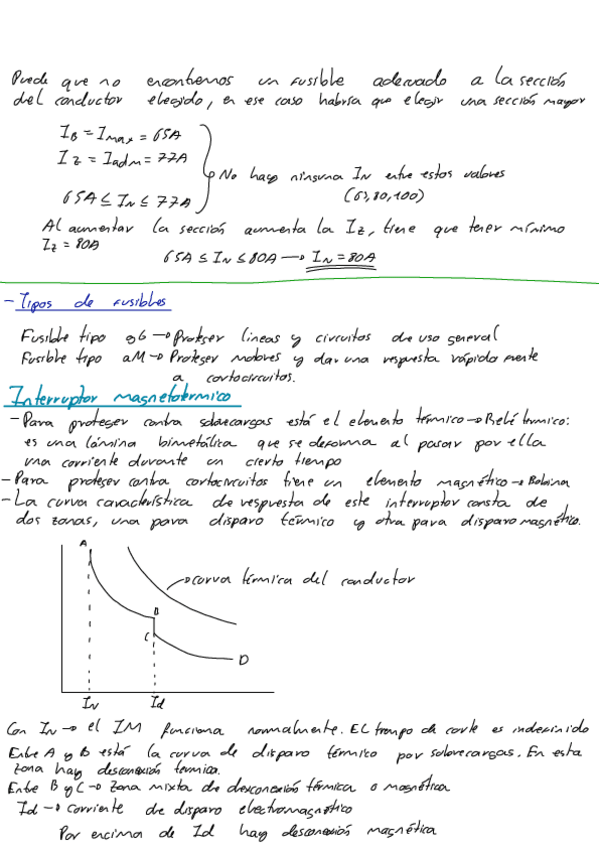 Puede que no encontremos un fusible adecuado a la sección
del conductor elegido, en ese caso habría que elegir una sección mayor
IB = Imax = 65A
Iz = Iadm = 77A
No hay ninguna IN entre estos valores
65A ≤ IN ≤ 77A
(63,80,100)
Al aumentar la sección aumenta la Iz, tiene que tener mínimo
Iz = 80A
65A ≤ IN ≤ 80A → IN = 80A
- Tipos de fusibles
Fusible tipo gG → Proteger lineas y circuitos de uso general
Fusible tipo aM → Proteger motores y dar una respuesta rápida frente
a cortocircuitos.
Interruptor magnetotérmico
- Para proteger contra sobrecargas está el elemento térmico → Relé térmico:
es una lámina bimetálica que se deforma al pasar por ella
una corriente durante un cierto tiempo
- Para proteger contra cortocircuitos tiene un elemento magnético → Bobina
- La curva característica de respuesta de este interruptor consta de
dos zonas, una para disparo térmico y otra para disparo magnético.
A
curva térmica del conductor
B
C
D
IN Id
Con IN → el IM funciona normalmente. El tiempo de corte es indefinido
Entre A y B está la curva de disparo térmico por sobrecargas. En esta
zona hay desconexión termica.
Entre B y C → Zona mixta de desconexión térmica o magnética
Id → Corriente de disparo electromagnético
Por encima de Id hay desconexión magnética